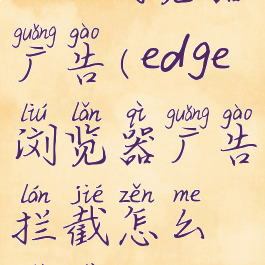 guǎng gào
广告(edge
liú lǎn qì guǎng gào
浏览器广告
lán jié zěn me
拦截怎么